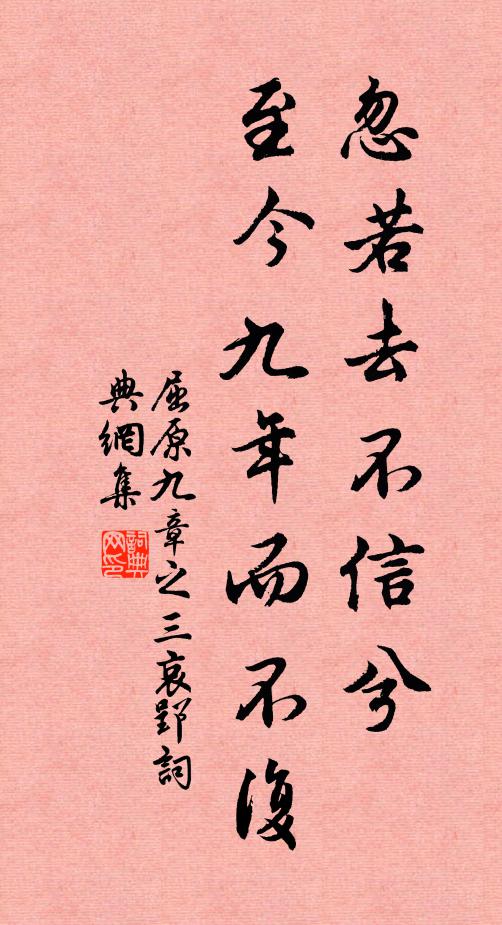 忽若去不信兮
至今九年而不復
屈原九章之三哀郢詞
典網集
詞典
网印